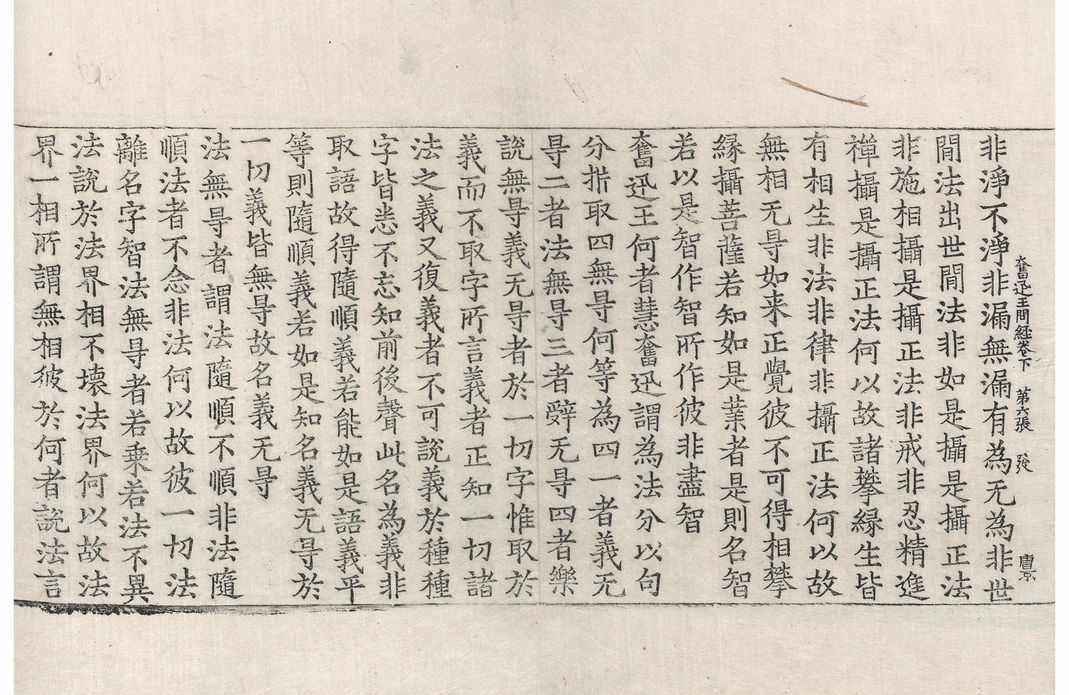 奮迅王問經卷下 第六張 發
非淨不淨非漏無漏有為无為非世
間法出世間法非如是攝是攝正法
非施相攝是攝正法非戒非忍精進
禪攝是攝正法何以故諸攀緣生皆
有相生非法非律非攝正法何以故
無相无㝵如来正覺彼不可得相攀
緣攝菩薩若知如是業者是則名智
若以是智作智所作彼非盡智
奮迅王何者慧奮迅謂為法分以句
分取四無㝵何等為四一者義无
㝵二者法無㝵三者辝无㝵四者樂
說無㝵義无㝵者於一切字惟取於
義而不取字所言義者正知一切諸
法之義又復義者不可說義於種種
字皆悉不忘知前後聲此名為義非
取語故得隨順義若能如是語義平
等則隨順義若如是知名義无㝵於
一切義皆無㝵故名義无㝵
法無㝵者謂法隨順不順非法隨
順法者不念非法何以故彼一切法
離名字智法無㝵者若乘若法不異
法說於法界相不壞法界何以故法
界一相所謂無相彼於何者說法言